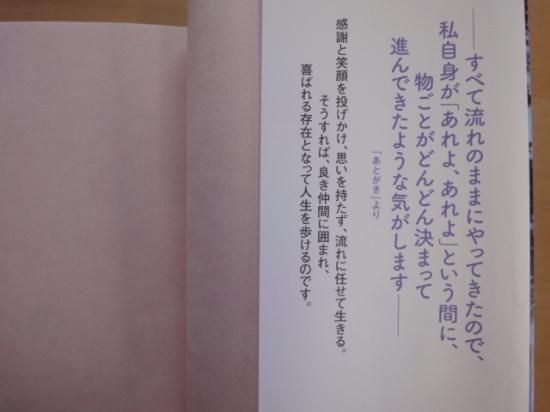 ――すべて流れのままにやってきたので、
私自身が「あれよ、あれよ」という間に、
物ごとがどんどん決まって
進んできたような気がします――
「あとがき」より
感謝と笑顔を投げかけ、思いを持たず、流れに任せて生きる。
そうすれば、良き仲間に囲まれ、
喜ばれる存在となって人生を歩けるのです。